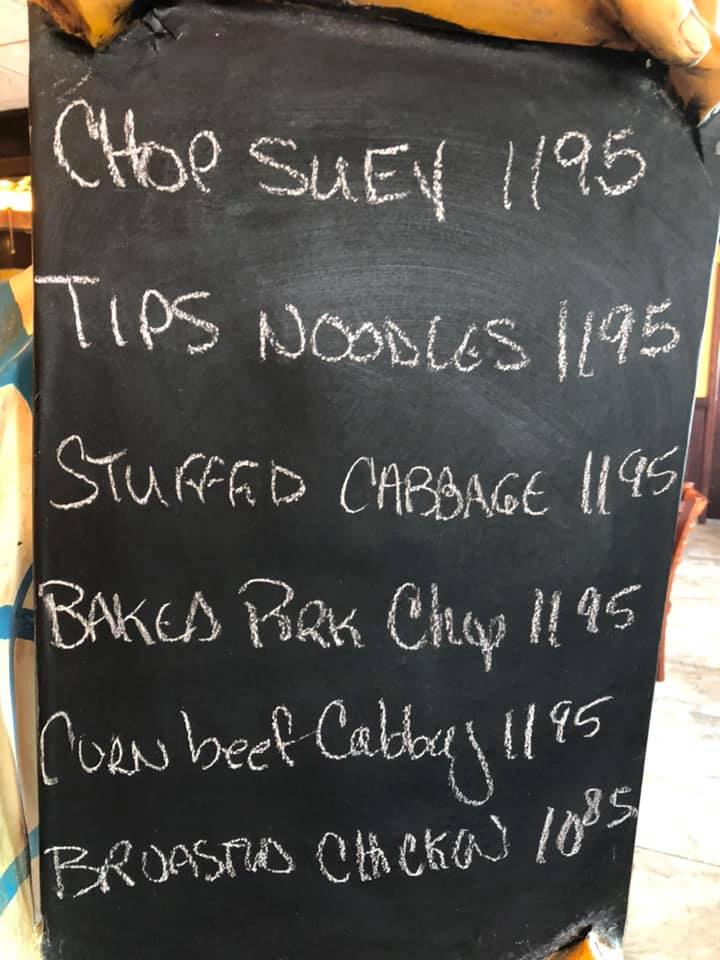 CHOP SUEY 1195
TIPS NOODLES 1195
STUFFED CABBAGE 1195
BAKED PORK Chop 1195
CORN beef Cabbag 1195
BROASTED CHICKEN 1085